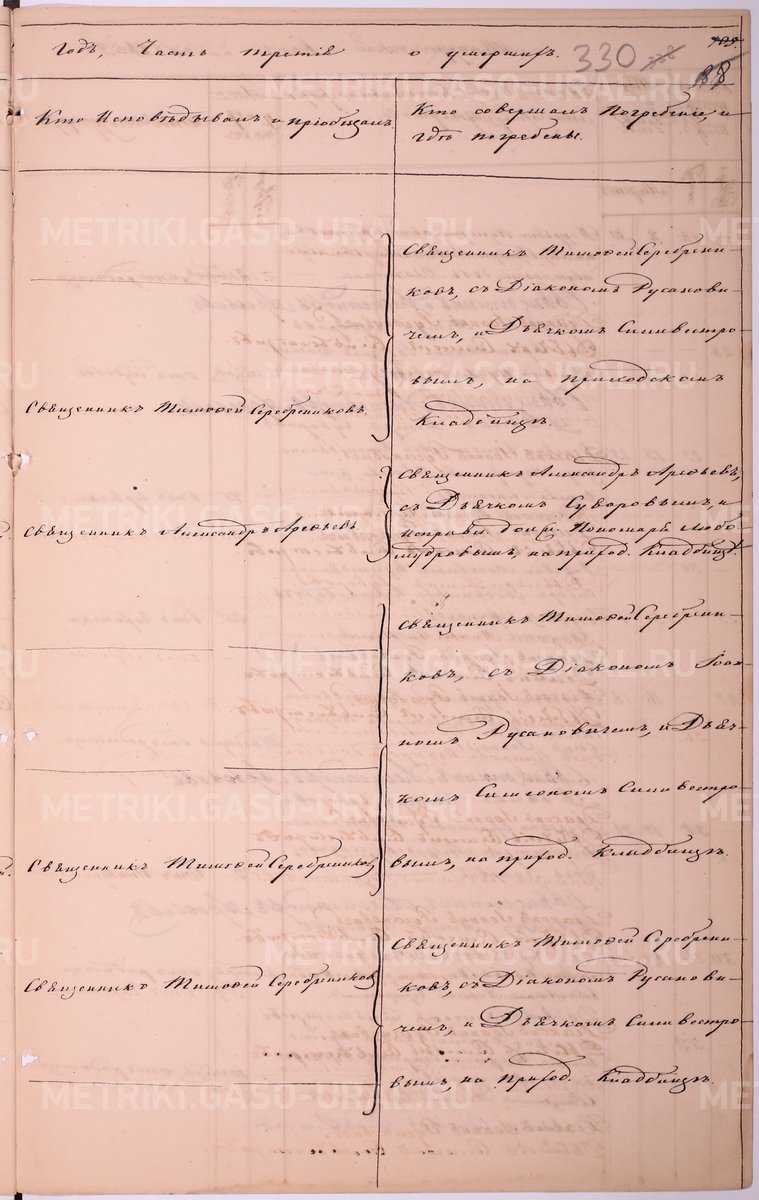 Годъ, Часть третія о умершихъ. 330
188
Кто Исповѣдывалъ и пріобщалъ.
Кто совершалъ Погребеніе, и
гдѣ погребены.
Священникъ Тимоѳей Серебрени-
ковъ, съ Діакономъ Русанови-
чемъ, и Дьячкомъ Силивестро-
вымъ, на приходскомъ
Кладбищѣ.
Священникъ Тимоѳей Серебрениковъ.
Священникъ Александръ Арефьевъ,
съ Дьячкомъ Суворовымъ, и
исправл. долж. Пономаря Любо-
мудровымъ, на приход. Кладбищѣ.
Священникъ Александръ Арефьевъ.
Священникъ Тимоѳей Серебрени-
ковъ, съ Діакономъ Іоан-
номъ Русановичемъ, и Дьяч-
комъ Симеономъ Силивестро-
вымъ, на приход. Кладбищѣ.
Священникъ Тимоѳей Серебрениковъ
Священникъ Тимоѳей Серебрени-
ковъ, съ Діакономъ Русанови-
чемъ, и Дьячкомъ Силивестро-
вымъ, на приход. Кладбищѣ.
Священникъ Тимоѳей Серебрениковъ
METRIKI.GASO-URAL.RU